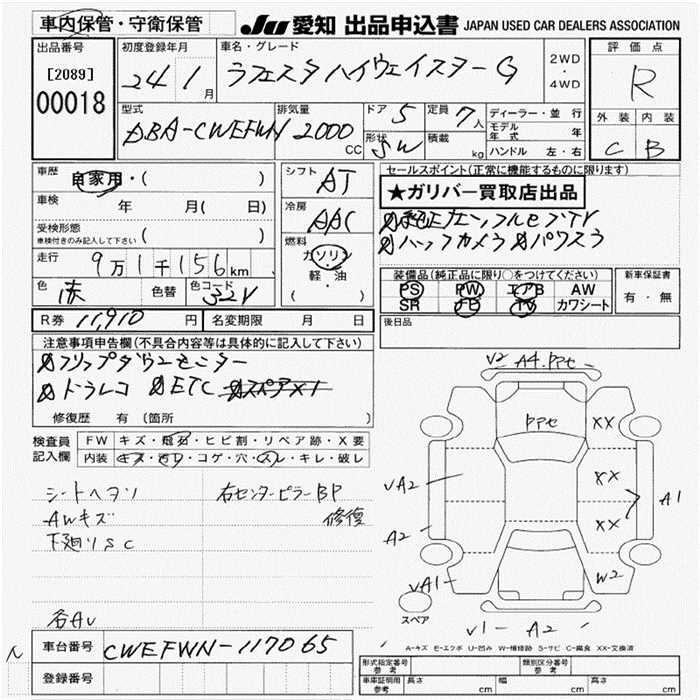 車内保管・守衛保管
JU 愛知 出品申込書 JAPAN USED CAR DEALERS ASSOCIATION
出品番号
[2089]
00018
初度登録年月
24年1月
車名・グレード
ラフェスタ ハイウェイスター G
2WD・4WD
評価点
R
外装 内装
C B
型式
DBA-CWEFWN
排気量
2000 CC
ドア 5
形状 SW
定員 7人
積載 kg
ディーラー・並行
モデル年式 年
ハンドル 左・右
車歴
自家用・( )
車検
年 月( 日)
受検形態
車検付きのみ記入して下さい
( )
走行
9万1千156km
色 赤 色替
色コード 32V
シフト AT
冷房 AAC
燃料
ガソリン・軽・油
( )
セールスポイント(正常に機能するものに限ります)
★ガリバー買取店出品
純正ナビ フルセグTV
バックカメラ パワスラ
装備品(純正品に限り○をつけてください)
PS PW エアB AW
SR ナビ TV カワシート
新車保証書
有・無
後日品
R券 11,910円
名変期限 月 日
注意事項申告欄(不具合内容等は具体的に記入して下さい)
フリップダウンモニター
ドラレコ ETC スペア×1
修復歴 有 (箇所 )
検査員記入欄
FW キズ・飛石・ヒビ割・リペア跡・X要
内装 キズ・汚レ・コゲ・穴・スレ・キレ・破レ
シートヘタリ
AWキズ
下廻りSC
右センターピラーBP
修復
各AU
車台番号 CWEFWN-117065
登録番号
V2 A4.PPセ
PPセ
XX
XX
XX
A1
VA2
A2
VA1
W2
スペア
V1 A2
A-キズ E-エクボ U-凹み W-補修跡 S-サビ C-腐食 XX-交換済
形式指定番号 参考
類別区分番号 参考
車庫証明用 参考 長さ cm 幅 cm 高さ cm